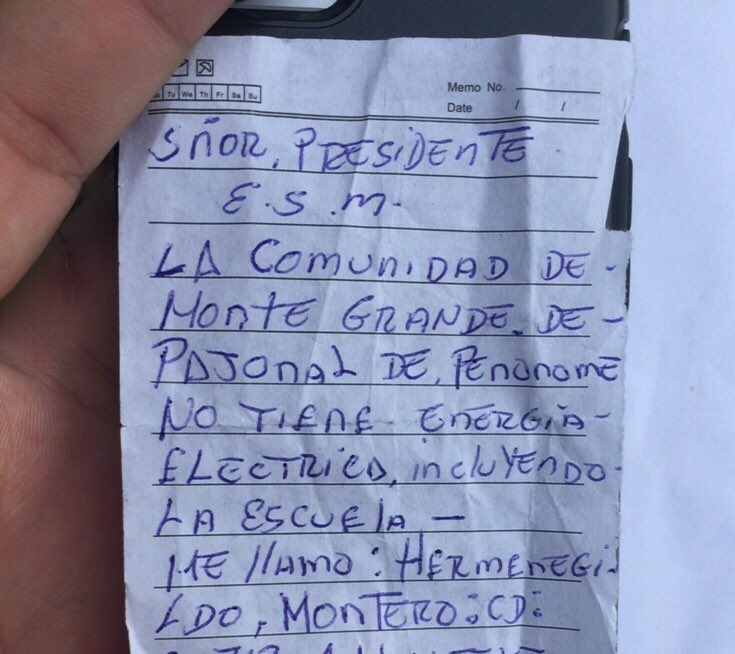 Tu We Th Fr Sa Su
Memo No.
Date / /
SÑOR, PRESIDENTE
E.S.M.
LA COMUNIDAD DE-
MONTE GRANDE. DE-
PAJONAL DE, PENONOME
NO TIENE ENERGÍA-
ELECTRICA, INCLUYENDO-
LA ESCUELA —
ME LLAMO: HERMENEGI-
LDO, MONTERO: CD: